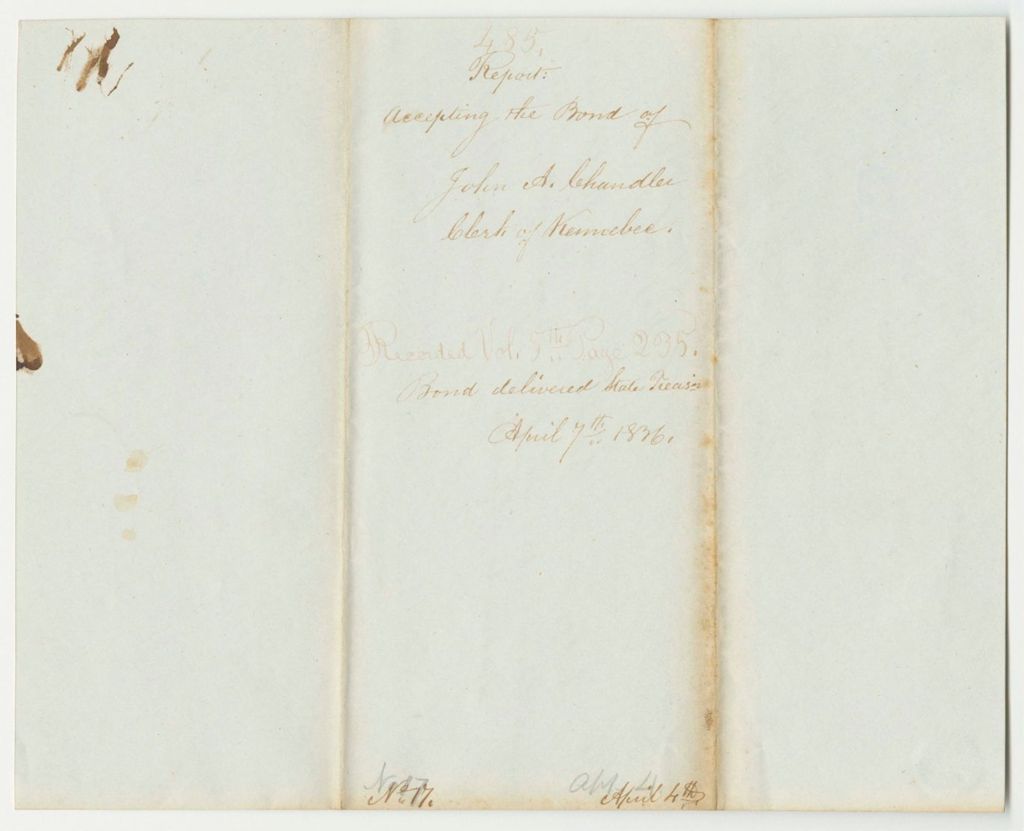 485.
Report:
Accepting the Bond of
John A. Chandler
Clerk of Kennebec.
Recorded Vol. 5th Page 235.
Bond delivered State Treasr
April 7th 1836.
No 17. April 4th